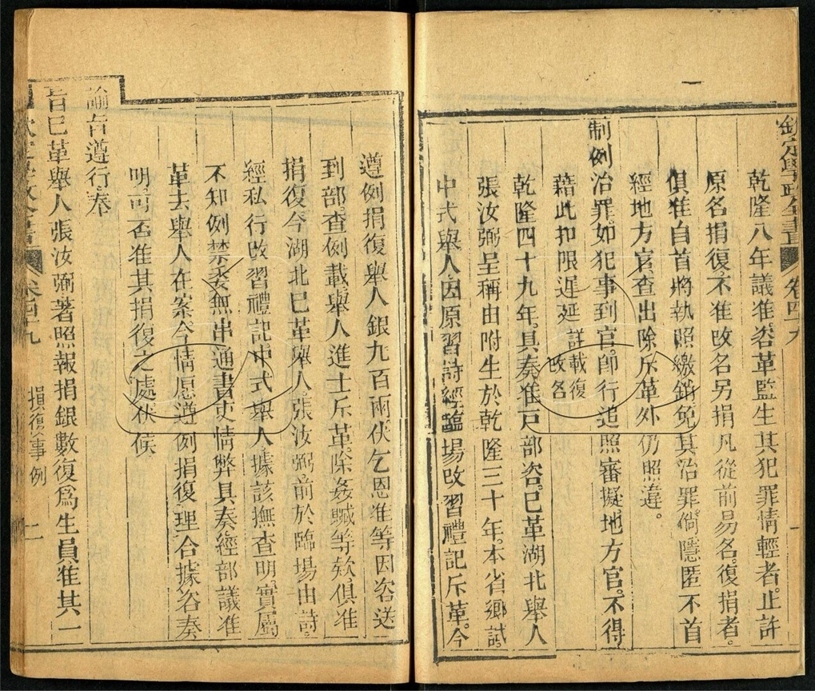 欽定學政全書
卷四十九
一
乾隆八年議准咨革監生其犯罪情輕者止許
原名捐復不准改名另捐凡從前易名復捐者
俱准自首將執照繳銷免其治罪倘隱匿不首
經地方官查出除斥革外仍照違
制例治罪如犯事到官卽行追照審擬地方官不得
藉此扣限遲延詳載復
改名
乾隆四十九年具奏准戶部咨已革湖北舉人
張汝弼呈稱由附生於乾隆三十年本省鄉試
中式舉人因原習詩經臨場改習禮記斥革今
遵例捐復舉人銀九百兩伏乞恩准等因咨送
到部查例載舉人進士斥革除姦贓等欵俱准
捐復今湖北已革舉人張汝弼前於臨場由詩
經私行改習禮記中式舉人據該撫查明實屬
不知例禁委無串通書吏情弊具奏經部議准
革去舉人在案今情愿遵例捐復理合據咨奏
明可否准其捐復之處伏候
諭旨遵行奉
旨已革舉人張汝弼著照報捐銀數復爲生員准其一
欽定學政全書
卷四十九
捐復事例
二